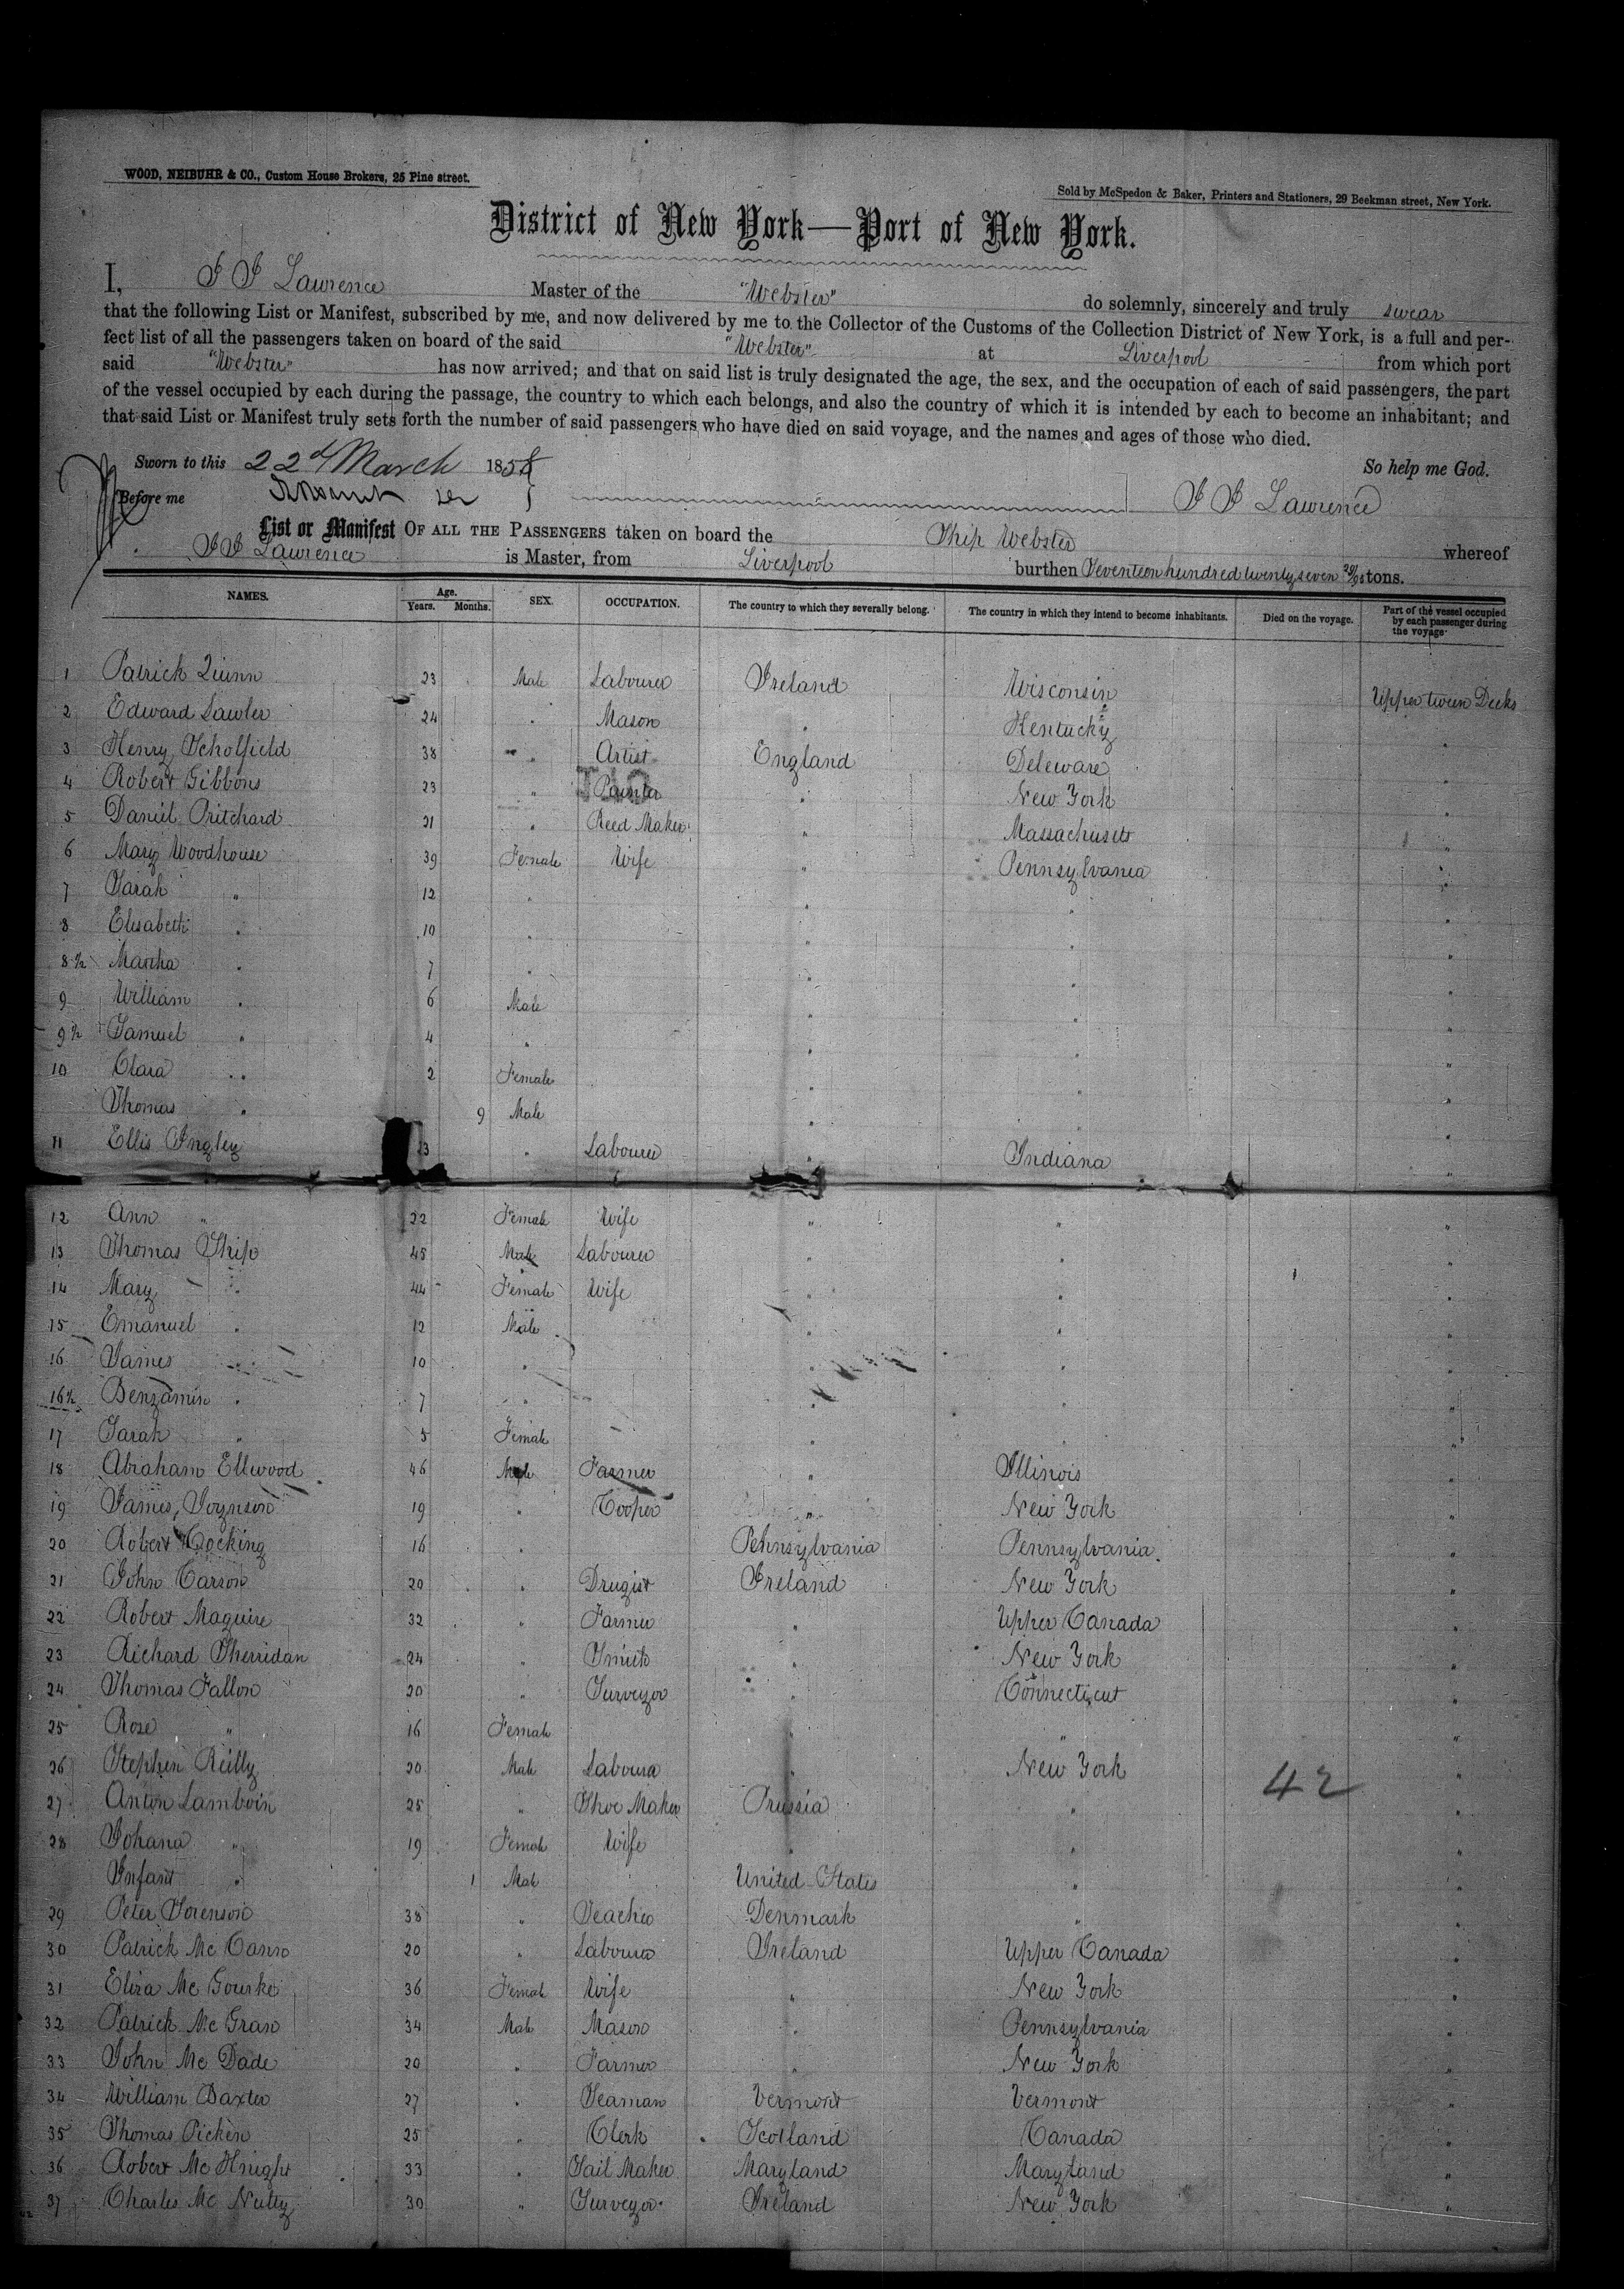 WOOD, NEIBUHR & CO., Custom House Brokers, 25 Pine street.
Sold by McSpedon & Baker, Printers and Stationers, 29 Beekman street, New York.
District of New York—Port of New York.
I, J J Lawrence Master of the "Webster" do solemnly, sincerely and truly swear
that the following List or Manifest, subscribed by me, and now delivered by me to the Collector of the Customs of the Collection District of New York, is a full and per-
fect list of all the passengers taken on board of the said "Webster" at Liverpool from which port
said "Webster" has now arrived; and that on said list is truly designated the age, the sex, and the occupation of each of said passengers, the part
of the vessel occupied by each during the passage, the country to which each belongs, and also the country of which it is intended by each to become an inhabitant; and
that said List or Manifest truly sets forth the number of said passengers who have died on said voyage, and the names and ages of those who died.
Sworn to this 22d March 1858 So help me God.
Before me J J Lawrence
List or Manifest OF ALL THE PASSENGERS taken on board the Ship Webster whereof
J J Lawrence is Master, from Liverpool burthen Seventeen hundred twenty seven tons.
NAMES. Age. Years. Months. SEX. OCCUPATION. The country to which they severally belong. The country in which they intend to become inhabitants. Died on the voyage. Part of the vessel occupied by each passenger during the voyage
1 Patrick Quinn 23 Male Labourer Ireland Wisconsin Upper tween Decks
2 Edward Lawler 24 " Mason " Kentucky "
3 Henry Scholfield 38 " Artist England Deleware "
4 Robert Gibbons 23 " Painter " New York "
5 Daniel Pritchard 21 " Reed Maker " Massachusets "
6 Mary Woodhouse 39 Female Wife " Pennsylvania "
7 Sarah " 12 " " " "
8 Elisabeth " 10 " " " "
8½ Martha " 7 " " " "
9 William " 6 Male " " "
9½ Samuel " 4 " " " "
10 Clara " 2 Female " " "
Thomas " 9 Male " " "
11 Ellis Ingley 23 " Labourer " Indiana "
12 Ann " 22 Female Wife " " "
13 Thomas Ship 45 Male Labourer " " "
14 Mary " 44 Female Wife " " "
15 Emanuel " 12 Male " " "
16 James " 10 " " " "
16½ Benjamin " 7 " " " "
17 Sarah " 5 Female " " "
18 Abraham Ellwood 46 Male Farmer " Illinois "
19 James Joynson 19 " Cooper " New York "
20 Robert Cocking 16 " Pennsylvania Pennsylvania "
21 John Carson 20 " Drugist Ireland New York "
22 Robert Maguire 32 " Farmer " Upper Canada "
23 Richard Sherridan 24 " Smith " New York "
24 Thomas Fallon 20 " Surveyor " Connecticut "
25 Rose " 16 Female " " "
26 Stephen Reilly 20 Male Labourer " New York "
27 Anton Lamboin 25 " Shoe Maker Prussia " "
28 Johana " 19 Female Wife " " "
Infant " 1 Male United States " "
29 Peter Sorenson 38 " Teacher Denmark " "
30 Patrick Mc Cann 20 " Labourer Ireland Upper Canada "
31 Eliza Mc Gourke 36 Female Wife " New York "
32 Patrick Mc Gran 34 Male Mason " Pennsylvania "
33 John Mc Dade 20 " Farmer " New York "
34 William Baxter 27 " Seaman Vermont Vermont "
35 Thomas Picken 25 " Clerk Scotland Canada "
36 Robert Mc Knight 33 " Sail Maker Maryland Maryland "
37 Charles Mc Nulty 30 " Surveyor Ireland New York "
42